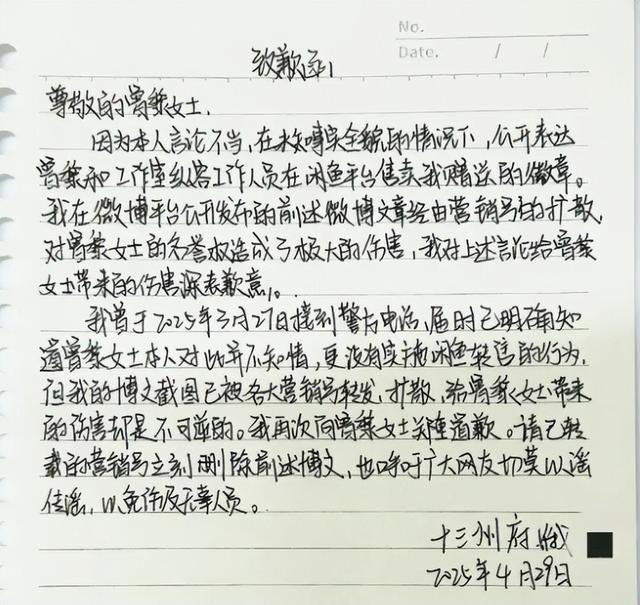 No.
Date. / /
致歉函
尊敬的曾黎女士.
因为本人言论不当,在未知事实全貌的情况下,公开表达
曾黎和工作室纵容工作人员在闲鱼平台售卖我赠送的徽章。
我在微博平台公开发布的前述微博文章经由营销号的扩散,
对曾黎女士的名誉权造成了极大的伤害,我对上述言论给曾黎
女士带来的伤害深表歉意。
我曾于2025年3月27日接到警方电话,届时已明确知
道曾黎女士本人对此并不知情,更没有实施闲鱼转售的行为.
但我的博文截图已被各大营销号转发,扩散,给曾黎女士带来
的伤害却是不可逆的。我再次向曾黎女士郑重道歉。请已转
载的营销号立刻删除前述博文,也呼吁广大网友切莫以谣
传谣,以免伤及无辜人员。
十三州府
2025年4月29日